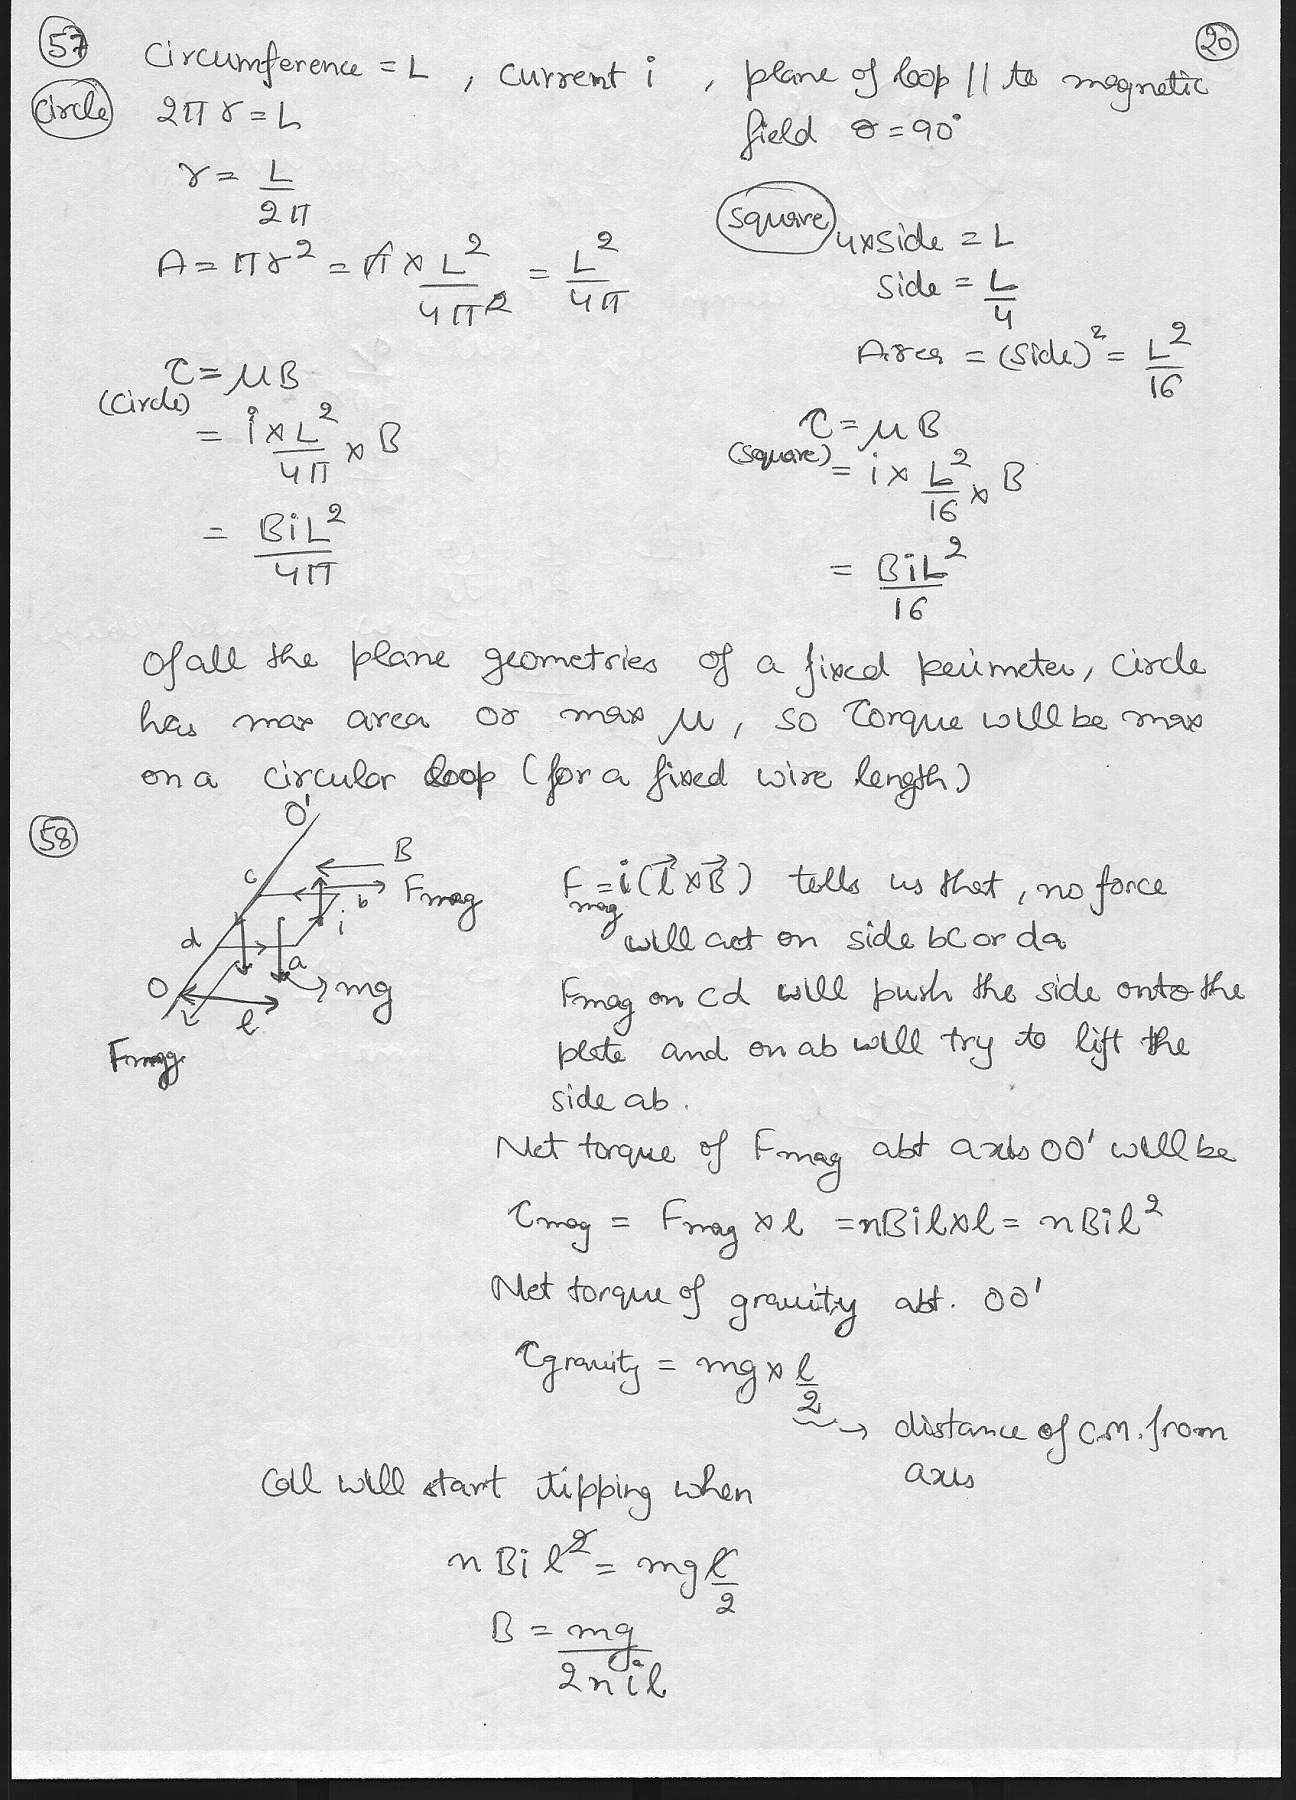 57
20
Circumference = L , current i , plane of loop || to magnetic
field θ = 90°
Circle 2πr = L
r = L/2π
A = πr² = π × L²/4π² = L²/4π
τ = μB
(circle)
= i × L²/4π × B
= BiL²/4π
square 4×side = L
side = L/4
Area = (side)² = L²/16
τ = μB
(square)
= i × L²/16 × B
= BiL²/16
Of all the plane geometries of a fixed perimeter, circle
has max area or max μ, so Torque will be max
on a circular loop (for a fixed wire length)
58
O'
B
c
b
Fmag
i
d
a
O
mg
l
Fmag
Fmag = i(l⃗ × B⃗) tells us that, no force
will act on side bc or da
Fmag on cd will push the side onto the
plate and on ab will try to lift the
side ab.
Net torque of Fmag abt axis OO' will be
τmag = Fmag × l = nBil×l = nBil²
Net torque of gravity abt. OO'
τgravity = mg × l/2
→ distance of C.M. from
axis
Coil will start tipping when
nBil² = mg l/2
B = mg/2nil